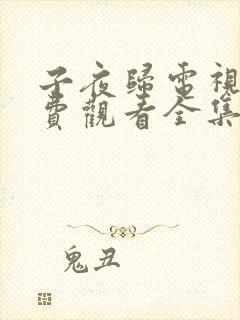 子夜歸電視
費觀看全集
鬼丑